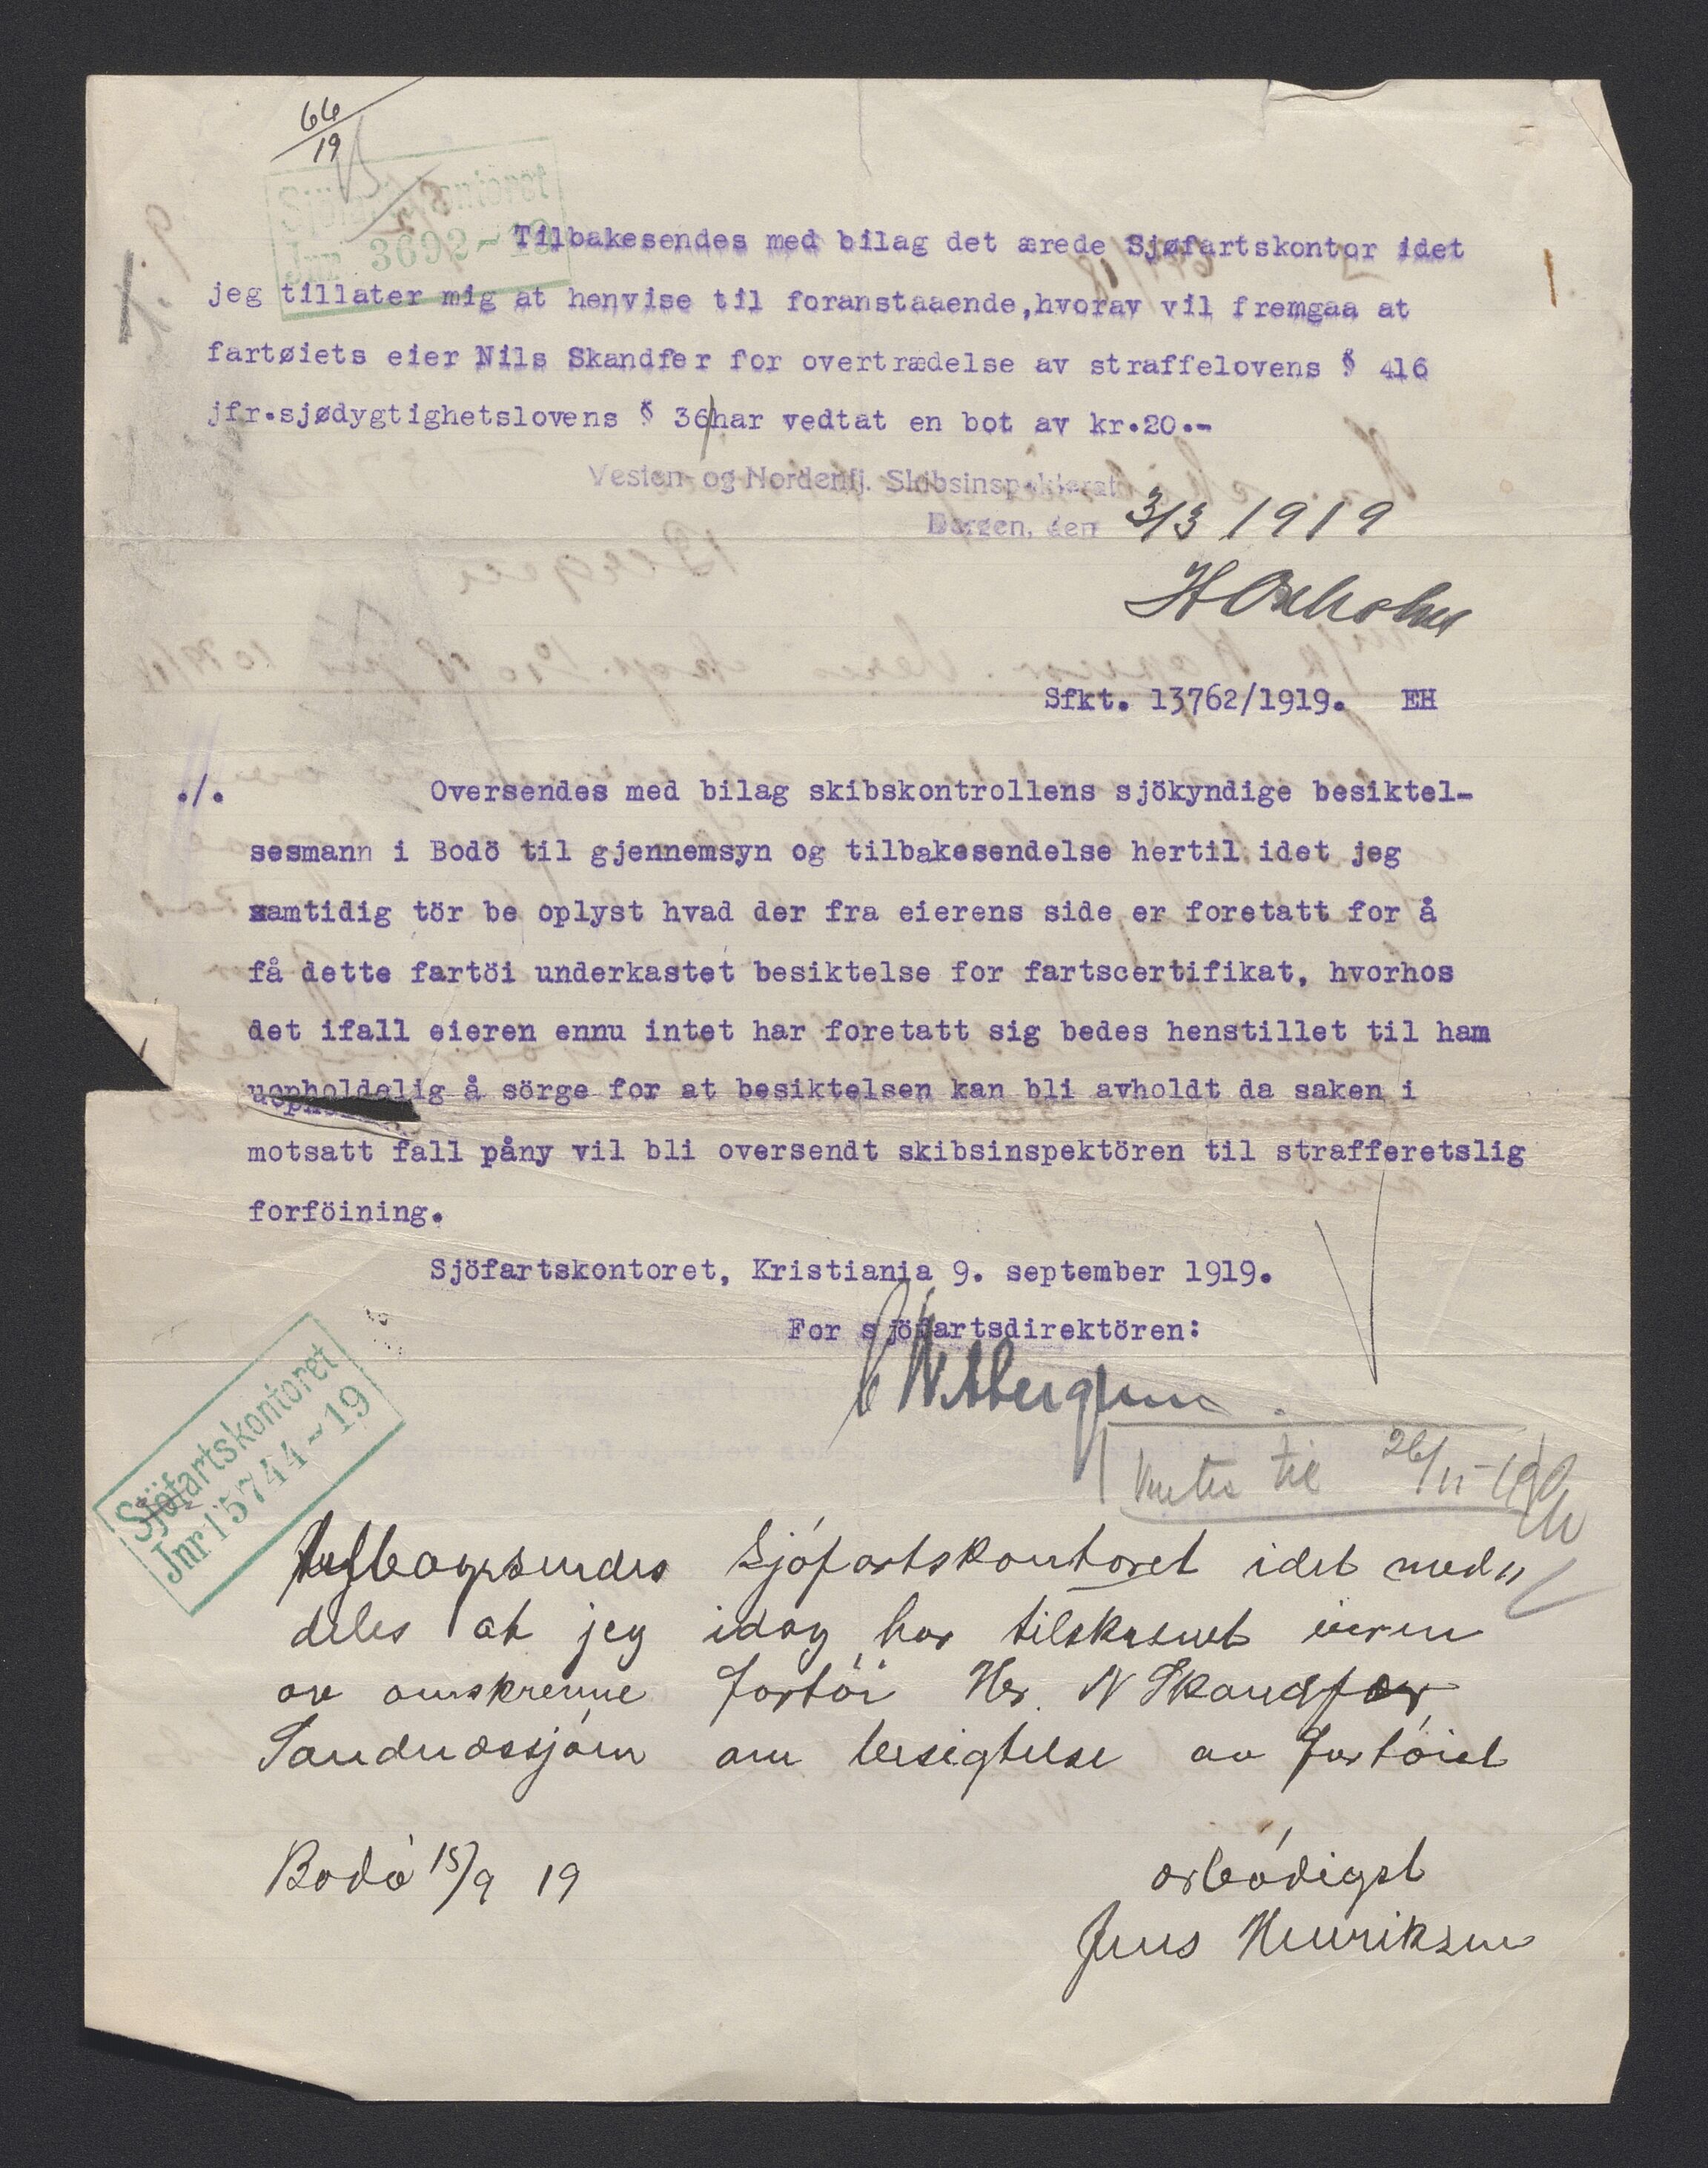 66
19
Sjöfartskontoret
Jnr 3692-19
Tilbakesendes med bilag det ærede Sjøfartskontor idet
jeg tillater mig at henvise til foranstaaende,hvorav vil fremgaa at
fartøiets eier Nils Skandfer for overtrædelse av straffelovens § 416
jfr.sjødygtighetslovens § 36 har vedtat en bot av kr.20.-
Vesten- og Nordenfj. Skibsinspektorat
Bergen, den 3/3 1919
Sfkt. 13762/1919. EH
./. Oversendes med bilag skibskontrollens sjökyndige besiktel-
sesmann i Bodö til gjennemsyn og tilbakesendelse hertil idet jeg
samtidig tör be oplyst hvad der fra eierens side er foretatt for å
få dette fartöi underkastet besiktelse for fartscertifikat, hvorhos
det ifall eieren ennu intet har foretatt sig bedes henstillet til ham
uopholdelig å sörge for at besiktelsen kan bli avholdt da saken i
motsatt fall påny vil bli oversendt skibsinspektören til strafferetslig
forföining.
Sjöfartskontoret, Kristiania 9. september 1919.
For sjöfartsdirektören:
Sjöfartskontoret
Jnr 15744-19
til 26/11-19
Sjöfartskontoret idet med„
deles at jeg idag har tilskrevet eieren
av omskrevne fartöi Her. N Skandfer
Sandnessjöen om besigtelse av fartöiet
Bodö 15/9 19
ærbödigst
Jens Henriksen